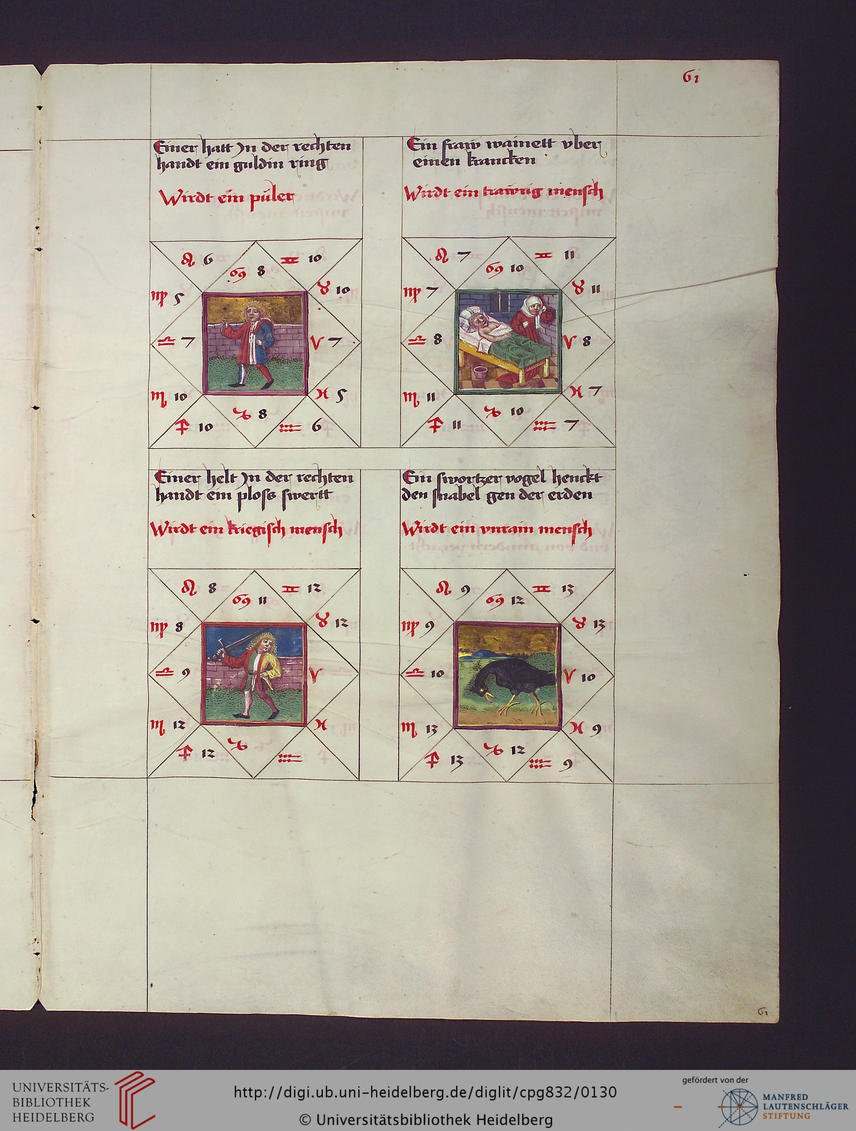 61
Einer hatt Jn der rechten
handt ein guldin ring
Wirdt ein půler
♌ 6
♋ 8
♊ 10
♍ 5
♉ 10
♎ 7
♈ 7
♏ 10
♓ 5
♐ 10
♑ 8
♒ 6
Ein fraw wainett vber
einen krancken
Wirdt ein trawrig mensch
♌ 7
♋ 10
♊ 11
♍ 7
♉ 11
♎ 8
♈ 8
♏ 11
♓ 7
♐ 11
♑ 10
♒ 7
Einer helt Jn der rechten
handt ein ploss swertt
Wirdt ein kriegisch mensch
♌ 8
♋ 11
♊ 12
♍ 8
♉ 12
♎ 9
♈
♏ 12
♓
♐ 12
♑
♒
Ein swortzer vogel henckt
den snabel gen der erden
Wirdt ein vnrain mensch
♌ 9
♋ 12
♊ 13
♍ 9
♉ 13
♎ 10
♈ 10
♏ 13
♓ 9
♐ 13
♑ 12
♒ 9
61
UNIVERSITÄTS-
BIBLIOTHEK
HEIDELBERG
http://digi.ub.uni-heidelberg.de/diglit/cpg832/0130
© Universitätsbibliothek Heidelberg
gefördert von der
MANFRED
LAUTENSCHLÄGER
STIFTUNG